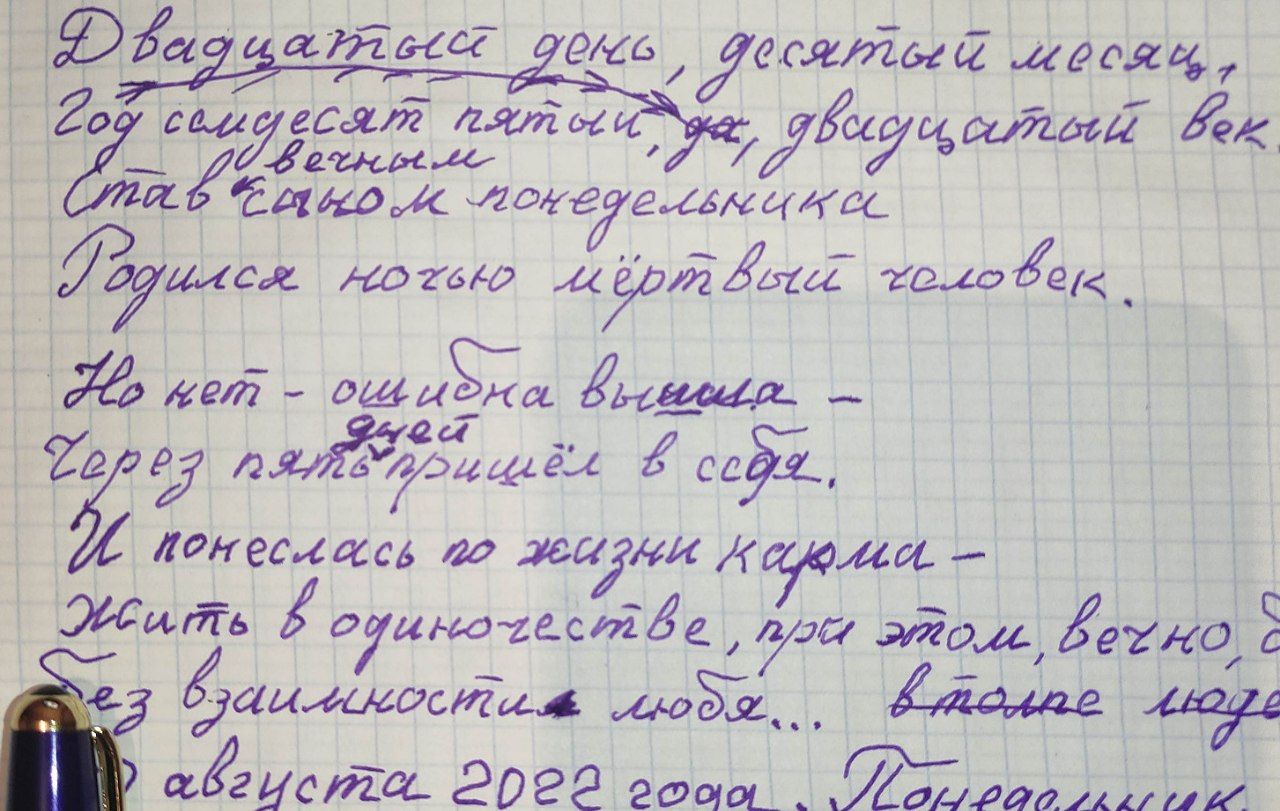 Двадцатый день, десятый месяц,
Год семдесят пятый, да, двадцатый век.
вечным
Став сыном понедельника
Родился ночью мёртвый человек.
Но нет - ошибка вышла -
дней
Через пять пришёл в себя.
И понеслась по жизни карма -
Жить в одиночестве, при этом, вечно,
без взаимности любя... в толпе
августа 2022 года. Понедельник